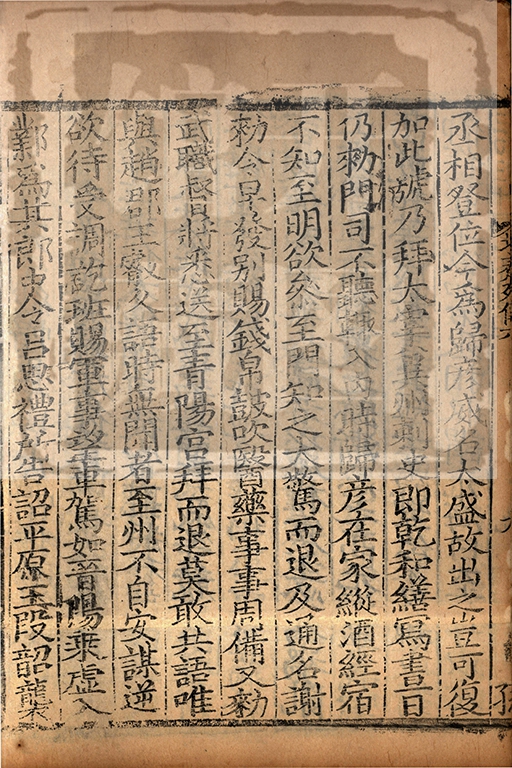 丞相登位今為歸彥威名太盛故出之豈可復
加此號乃拜太宰兾州刺史即乾和繕寫晝日
仍勑門司不聽輙入内時歸彥在家縱酒經宿
不知至明欲叅至門知之大驚而退及通名謝
勑令早發别賜錢帛鼓吹醫藥事事周備又勑
武職督將悉送至青陽宫拜而退莫敢共語唯
與趙郡王叡久語時無聞者至州不自安謀逆
欲待受調訖班賜軍事望車駕如晋陽乘虚入
鄴為其郎中令吕思禮所告詔平原王段韶襲